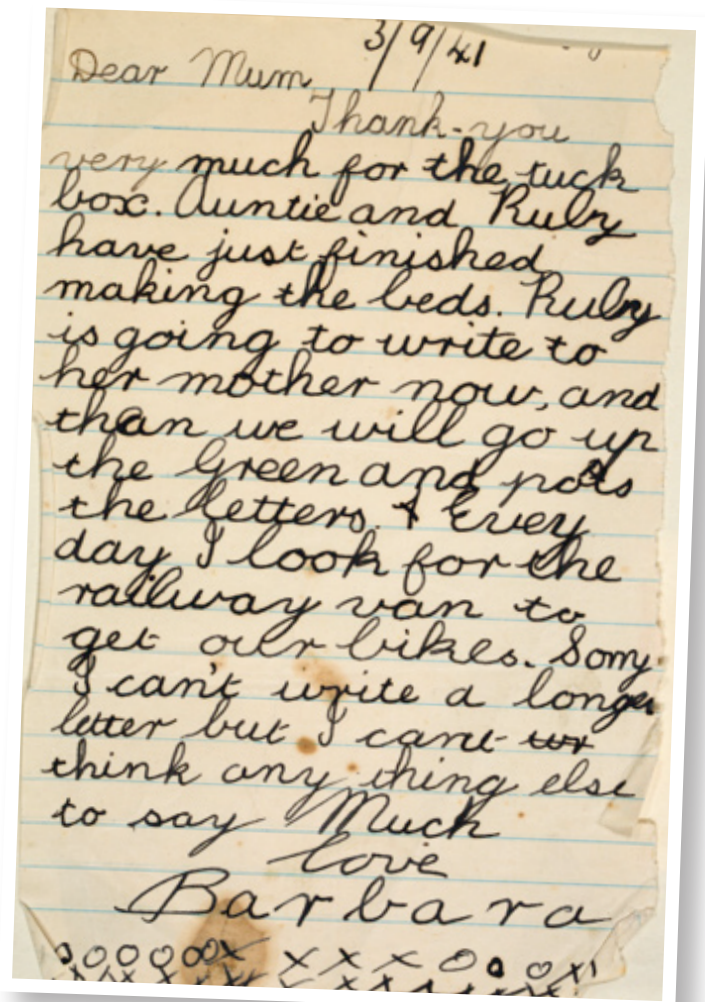 3/9/41
Dear Mum
Thank-you
very much for the tuck
box. Auntie and Ruby
have just finished
making the beds. Ruby
is going to write to
her mother now, and
than we will go up
the Green and pos
the letters. Evey
day I look for the
railway van to
get our bikes. Sorry
I can't write a longer
letter but I cant wr
think any thing else
to say Much
love
Barbara